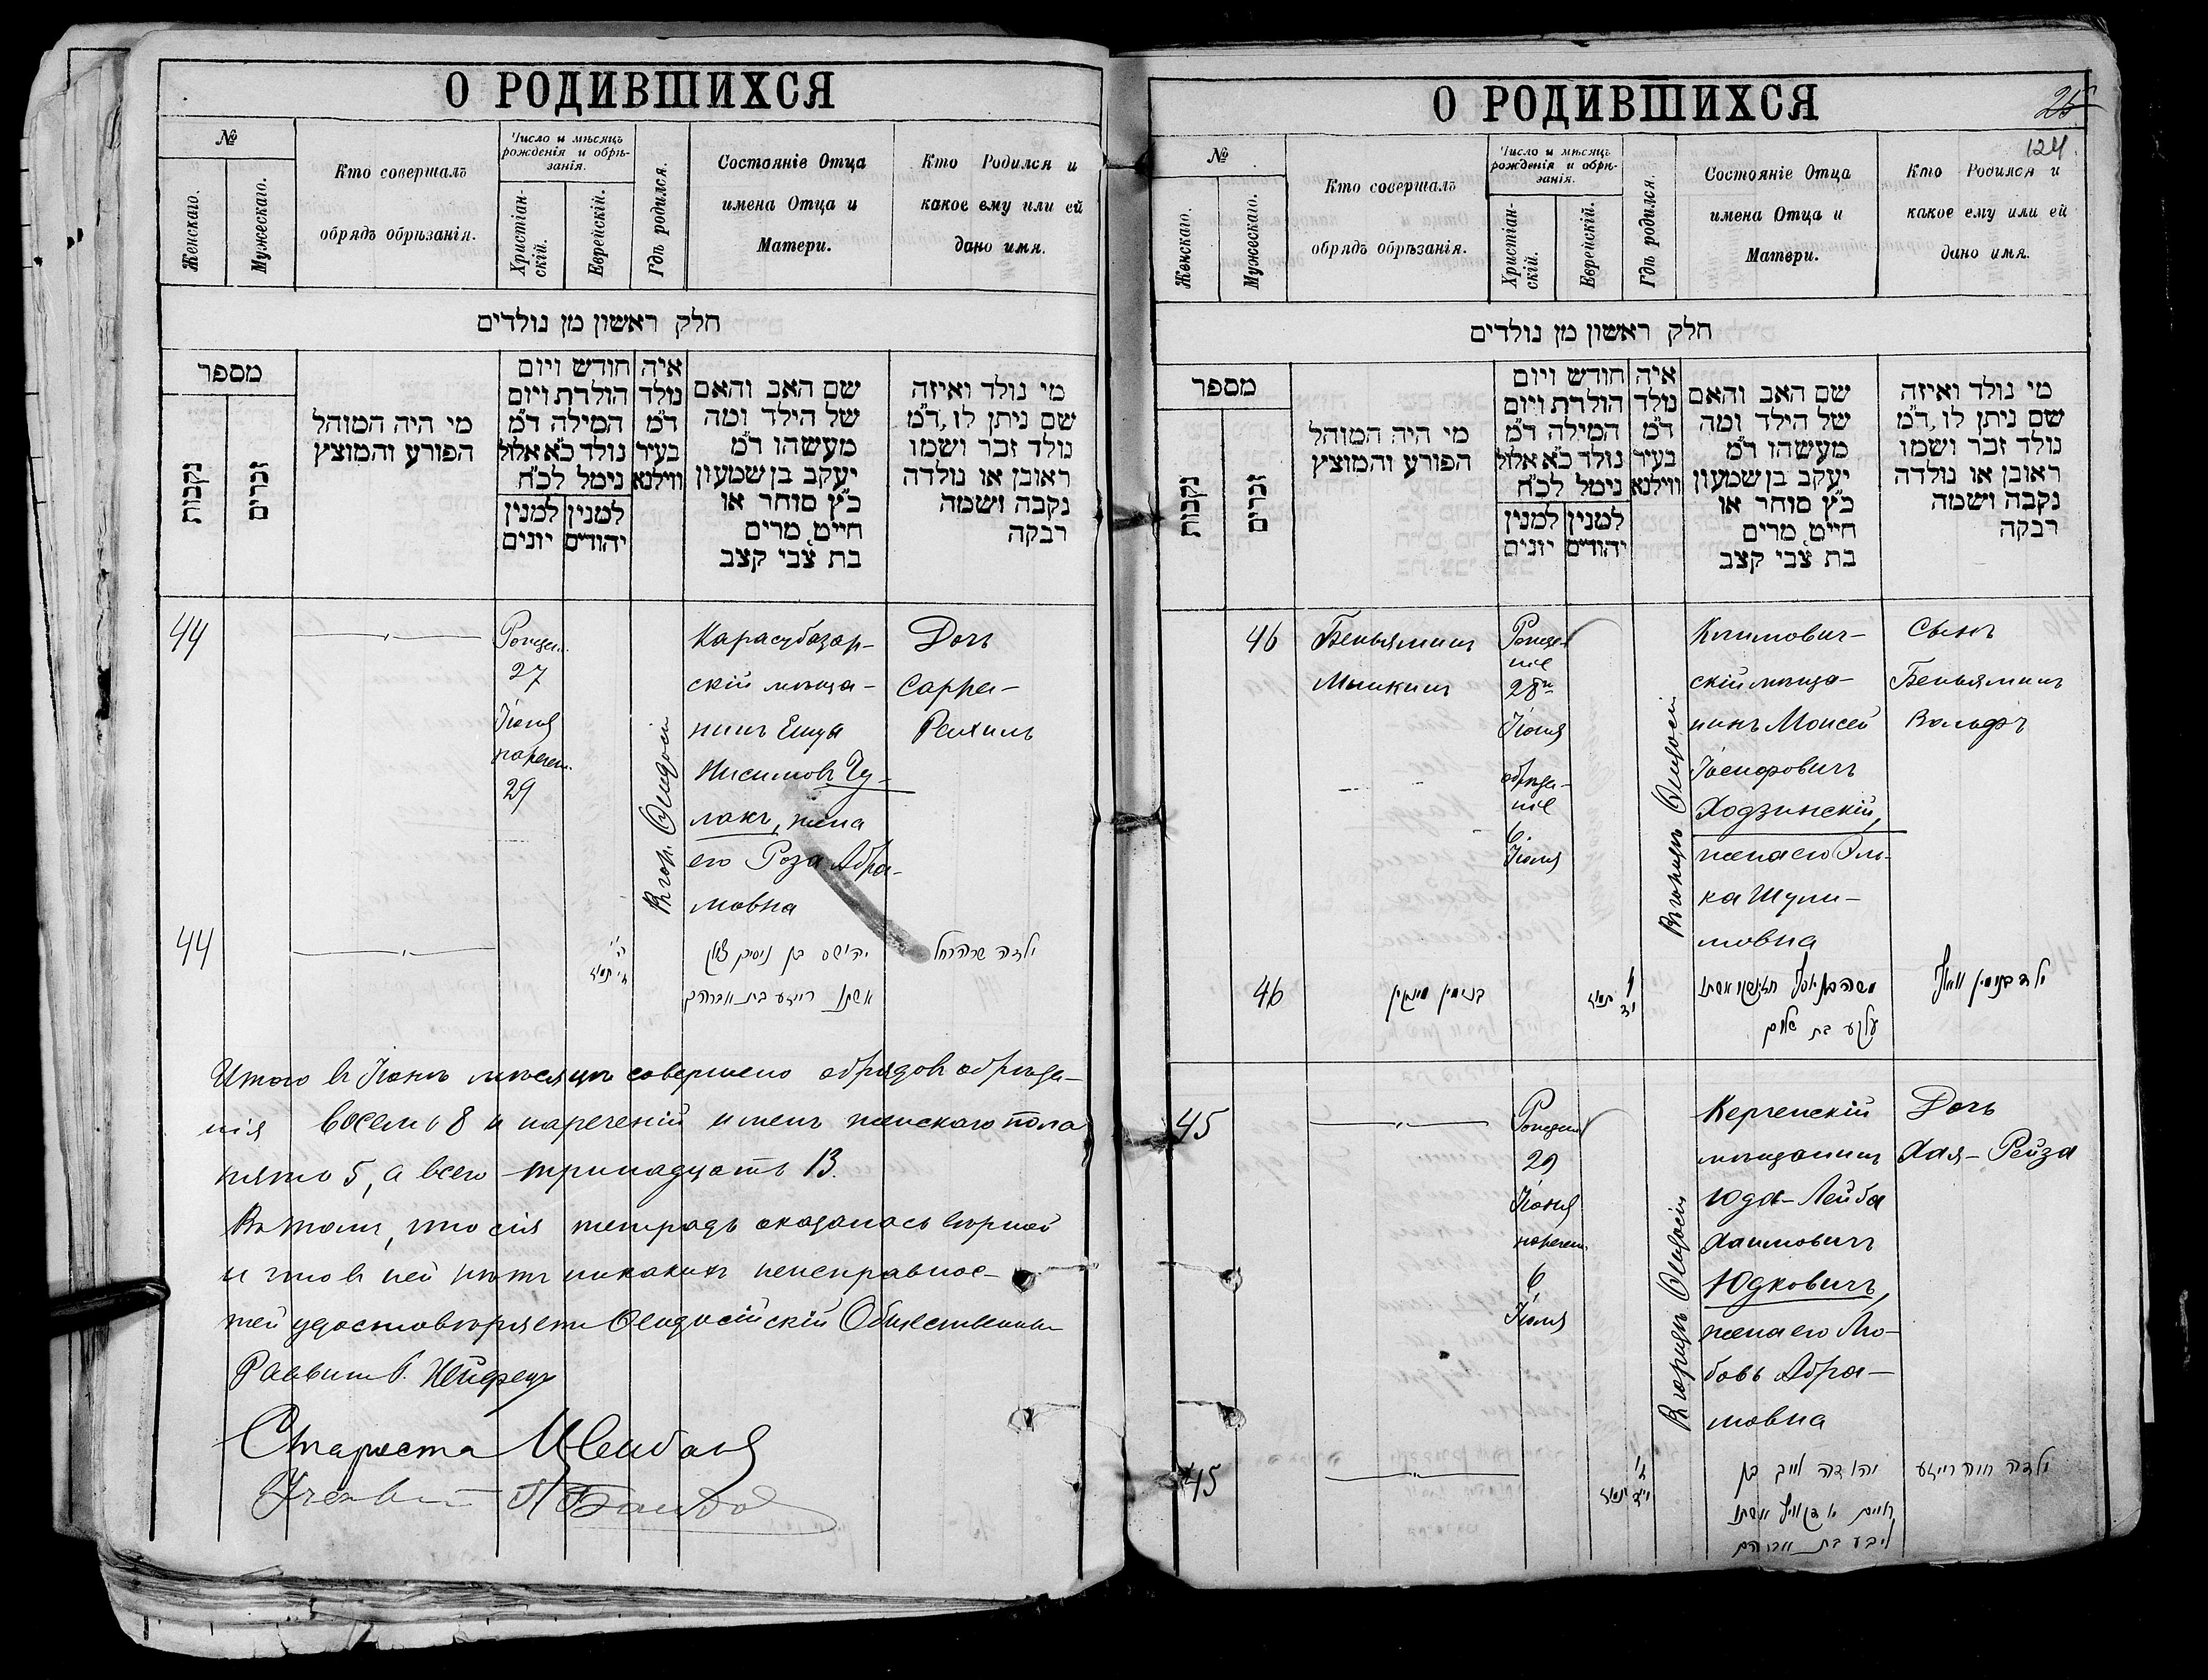 О РОДИВШИХСЯ
№
Женскаго.
Мужескаго.
Кто совершалъ
обрядъ обрѣзанія.
Число и мѣсяцъ
рожденія и обрѣ-
занія.
Христіан-
скій.
Еврейскій.
Гдѣ родился.
Состояніе Отца
имена Отца и
Матери.
Кто Родился и
какое ему или ей
дано имя.
חלק ראשון מן נולדים
מספר
נקבות
זכרים
מי היה המוהל
הפורע והמוצץ
חודש ויום
הולדת ויום
המילה ד״מ
נולד כ״א אלול
נימל לכ״ח
למנין
יונים
למנין
יהודים
איה
נולד
ד״מ
בעיר
ווילנא
שם האב והאם
של הילד ומה
מעשהו ד״מ
יעקב בן שמעון
כ״ץ סוחר או
חייט, מרים
בת צבי קצב
מי נולד ואיזה
שם ניתן לו, ד״מ
נולד זכר ושמו
ראובן או נולדה
נקבה ושמה
רבקה
44
Рожден.
27
Іюня
наречен.
29
В гор. Ѳеодосіи
Карасубазар-
скій мѣща-
нинъ Ешуа
Нисимовъ Чу-
лакъ, жена
его Роза Абра-
мовна
Дочь
Сарра-
Рехиль
44
תמוז
יהושע בן נסים
אשתו רייזע בת אברהם
ילדה שרה רחל
Итого въ Іюнѣ мѣсяцѣ совершено обрядовъ обрѣза-
нія восемь 8 и нареченій именъ женскаго пола
пять 5, а всего тринадцать 13.
Въ томъ, что сія тетрадь оказалась вѣрной
и что въ ней нѣтъ никакихъ неисправнос-
тей удостовѣряетъ Ѳеодосійскій Общественный
Раввинъ
Староста
О РОДИВШИХСЯ
25
124
№
Женскаго.
Мужескаго.
Кто совершалъ
обрядъ обрѣзанія.
Число и мѣсяцъ
рожденія и обрѣ-
занія.
Христіан-
скій.
Еврейскій.
Гдѣ родился.
Состояніе Отца
имена Отца и
Матери.
Кто Родился и
какое ему или ей
дано имя.
חלק ראשון מן נולדים
מספר
נקבות
זכרים
מי היה המוהל
הפורע והמוצץ
חודש ויום
הולדת ויום
המילה ד״מ
נולד כ״א אלול
נימל לכ״ח
למנין
יונים
למנין
יהודים
איה
נולד
ד״מ
בעיר
ווילנא
שם האב והאם
של הילד ומה
מעשהו ד״מ
יעקב בן שמעון
כ״ץ סוחר או
חייט, מרים
בת צבי קצב
מי נולד ואיזה
שם ניתן לו, ד״מ
נולד זכר ושמו
ראובן או נולדה
נקבה ושמה
רבקה
46
Беньяминъ
Мышкинъ
Рожде-
ніе
28
Іюня
обрѣза-
ніе
6
Іюля
Въ городѣ Ѳеодосіи
Климович-
скій мѣща-
нинъ Моисей
Іосифовичъ
Ходзинскій,
жена его Эль-
ка Шули-
мовна
Сынъ
Беньяминъ
Вольфъ
46
בנימין מישקין
תמוז
משה בן יוסף חודזינסקי אשתו
עלקע בת שלום
ילד בנימין וואלף
45
Рожден.
29
Іюня
наречен.
6
Іюля
Въ городѣ Ѳеодосіи
Керченскій
мѣщанинъ
Юда-Лейба
Хаимовичъ
Юдковичъ,
жена его Лю-
бовь Абра-
мовна
Дочь
Хая-Рейза
45
תמוז
יהודה לייב בן
חיים יודקאוויץ אשתו
ליבע בת אברהם
ילדה חיה רייזע